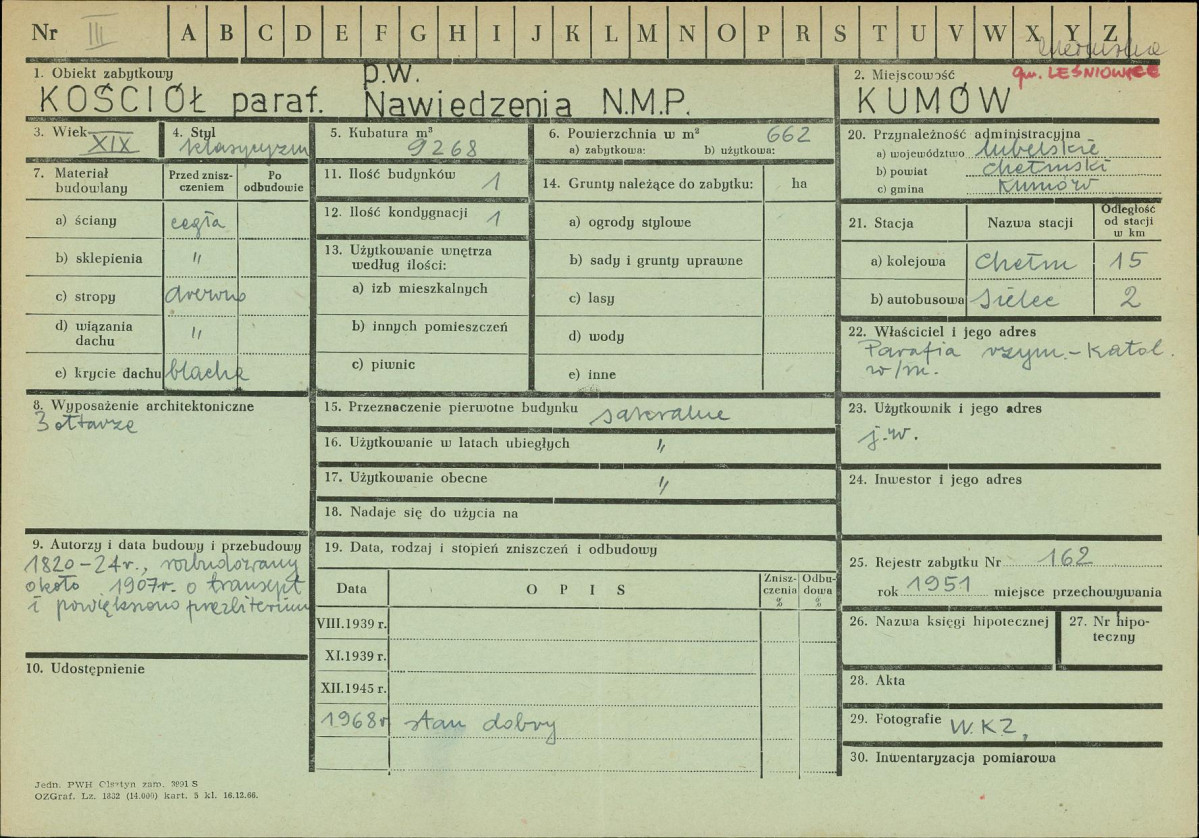 Nr III A B C D E F G H I J K L M N O P R S T U V W X Y Z
gm. LEŚNIOWICE
1. Obiekt zabytkowy
p.w.
KOŚCIÓŁ paraf. Nawiedzenia N.M.P.
2. Miejscowość
KUMÓW
3. Wiek XIX
4. Styl
klasycyzm
5. Kubatura m³
9268
6. Powierzchnia w m² 662
a) zabytkowa: b) użytkowa:
7. Materiał budowlany
Przed zniszczeniem
Po odbudowie
a) ściany cegła
b) sklepienia "
c) stropy drewno
d) wiązania dachu "
e) krycie dachu blacha
8. Wyposażenie architektoniczne
3 ołtarze
9. Autorzy i data budowy i przebudowy
1820-24r., rozbudowany
około 1907r. o transept
i powiększono prezbiterium
10. Udostępnienie
11. Ilość budynków 1
12. Ilość kondygnacji 1
13. Użytkowanie wnętrza
według ilości:
a) izb mieszkalnych
b) innych pomieszczeń
c) piwnic
14. Grunty należące do zabytku: ha
a) ogrody stylowe
b) sady i grunty uprawne
c) lasy
d) wody
e) inne
15. Przeznaczenie pierwotne budynku sakralne
16. Użytkowanie w latach ubiegłych "
17. Użytkowanie obecne "
18. Nadaje się do użycia na
19. Data, rodzaj i stopień zniszczeń i odbudowy
Data
O P I S
Zniszczenia %
Odbudowa %
VIII.1939 r.
XI.1939 r.
XII.1945 r.
1968r stan dobry
20. Przynależność administracyjna
a) województwo lubelskie
b) powiat chełmski
c) gmina Kumów
21. Stacja
Nazwa stacji
Odległość od stacji w km
a) kolejowa Chełm 15
b) autobusowa Sielec 2
22. Właściciel i jego adres
Parafia rzym.-katol.
w/m.
23. Użytkownik i jego adres
j.w.
24. Inwestor i jego adres
25. Rejestr zabytku Nr 162
rok 1951 miejsce przechowywania
26. Nazwa księgi hipotecznej
27. Nr hipoteczny
28. Akta
29. Fotografie W.K.Z,
30. Inwentaryzacja pomiarowa
Jedn. PWH Olsztyn zam. 3991 S
OZGraf. Lz. 1832 (14.000) kart. 5 kl. 16.12.66.